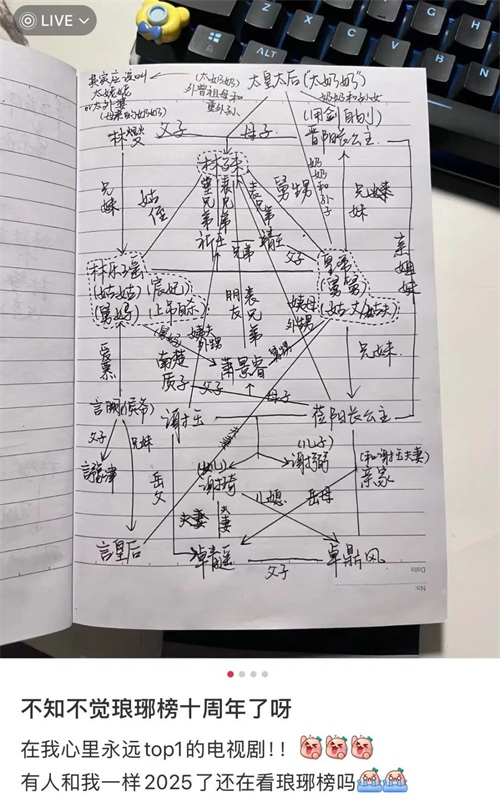 LIVE
ALT
太皇太后("太奶奶")
(太奶奶)
外曾祖母和
重外孙
奶奶和孙女
(用剑自刎)
其实应该叫
太姥姥
林燮
父子
母子
晋阳长公主
林殊
兄妹
姑侄
表兄弟
表兄弟
表兄弟
舅甥
奶奶和孙子
兄妹
亲姐妹
祁王
兄弟
靖王
父子
林乐瑶
(姑姑)
(宸妃)
(舅妈)
(上吊自杀)
皇帝
(舅舅)
(姑丈/姑夫)
朋友
表兄弟
姨母
外甥
兄妹
爱慕
南楚
质子
萧景睿
父子
母子
言阙(侯爷)
谢玉
莅阳长公主
父子
兄妹
夫妻
(儿子)
谢弼
(和谢玉夫妻)
亲家
言豫津
岳父
谢绮
儿媳
岳母
夫妻
夫妻
言皇后
卓青遥
父子
卓鼎风
Date
No:
不知不觉琅琊榜十周年了呀
在我心里永远top1的电视剧!!
有人和我一样2025了还在看琅琊榜吗